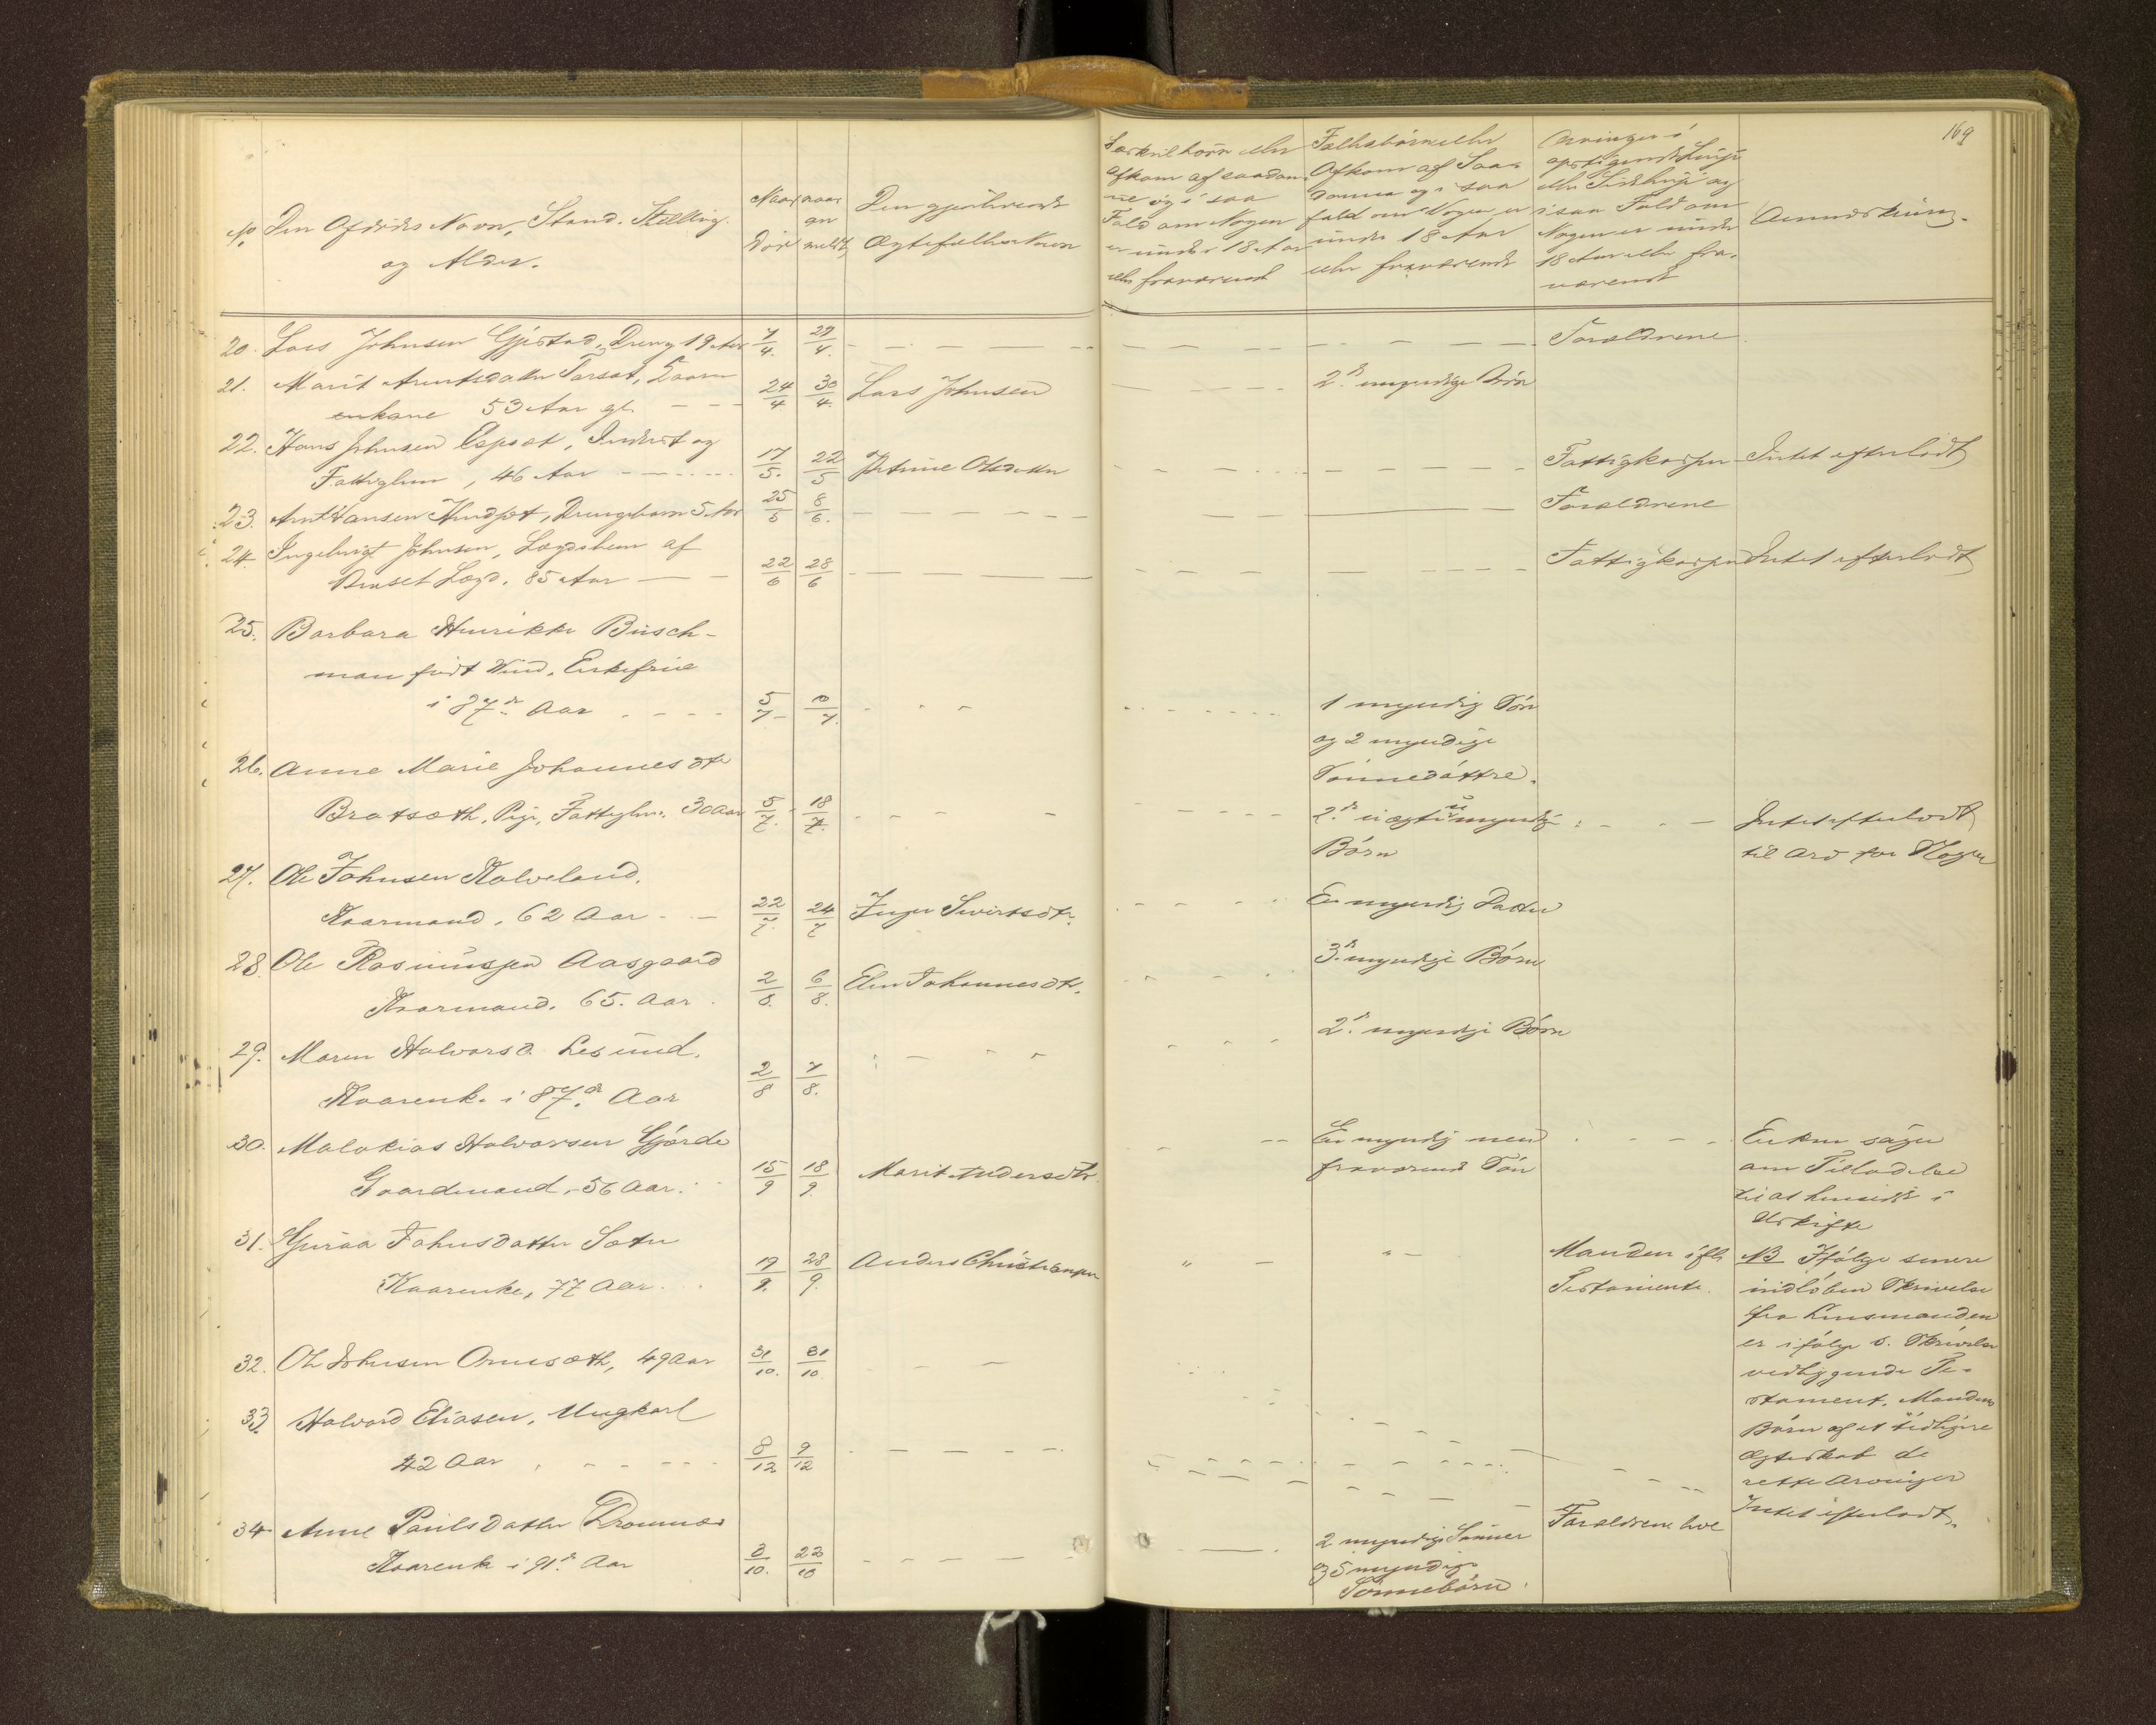 169
No Den Afdødes Navn, Stand, Stilling
og Alder.
Naar død
naar anmeldt
Den gjenlevende
Ægtefælles Navn
Særkulbørn eller
Afkom af saadan-
ne og i saa
Fald om Nogen
er under 18 Aar
eller fraværende
Fællesbørn eller
Afkom af Saa-
danne og i saa
fald om Nogen er
under 18 Aar
eller fraværende
Arvinger i
opstigende Linje
eller Sidelinje og
i saa Fald om
Nogen er under
18 Aar eller fra-
værende
Anmærkning.
20. Lars Johnsen Gjøstad, Dreng 19 Aar 7/4. 29/4. Forældrene
21. Marit Arntsdatter Torset, Kaar-
enkone 53 Aar gl. 24/4 30/4. Lars Johnsen 2de myndige Børn
22. Hans Johnsen Espset, Inderst og
Fattiglem, 46 Aar 17/5. 22/5 Petrine Olsdatter Fattigkassen Intet efterladt
23. Arnt Hansen Hundset, Drengebarn 5 Aar 25/5 8/6. Forældrene
24. Ingebrigt Johnsen, Lægdslem af
Druset Lægd. 85 Aar 22/6 28/6 Fattigkassen Intet efterladt
25. Barbara Henrikke Busch-
man født Wind. Enkefrue
i 87de Aar 5/7 10/7. 1 myndig Søn
og 2 myndige
Sønnedøttre.
26. Anne Marie Johannesdtr
Bratsæth, Pige, Fattiglem. 30 Aar 5/7. 18/7. 2de uægte umyndige
Børn
Intet efterladt
til Arv for Nogen
27. Ole Johnsen Halveland.
Kaarmand, 62 Aar 22/7. 24/7 Inger Sivertsdtr. En myndig Datter
28. Ole Rasmussen Aasgaard
Kaarmand. 65. Aar 2/8. 6/8. Elen Johannesdtr. 3de myndige Børn
29. Maren Halvorsd. Lesund.
Kaarenk. i 87de Aar 2/8 7/8. 2de myndige Børn
30. Malakias Halvorsen Gjørde
Gaardmand, 56 Aar. 15/9 18/9. Marit Andersdtr. En myndig men
fraværende Søn
Enken søger
om Tilladelse
til at hensidde i
Uskifte
31. Guraa Johnsdatter Sæter
Kaarenke, 77 Aar 19/9. 28/9. Anders Christensen " " Manden ifl.
Testamente.
NB Ifølge senere
indløben Skrivelse
fra Lensmanden
er ifølge s. Skrivelse
vedliggende Te-
stament. Mandens
Børn af et tidligere
Ægteskab de
rette Arvinger
32. Ole Johnsen Omesæth, 49 Aar 31/10. 31/10
33. Halvard Eliasen, Ungkarl
42 Aar 8/12 9/12 Forældrene leve Intet efterladt.
34 Anne Paulsdatter Dromnæs
Kaarenk i 91de Aar 8/10. 23/10 2 myndige Sønner
og 5 myndige
Sønnebørn.